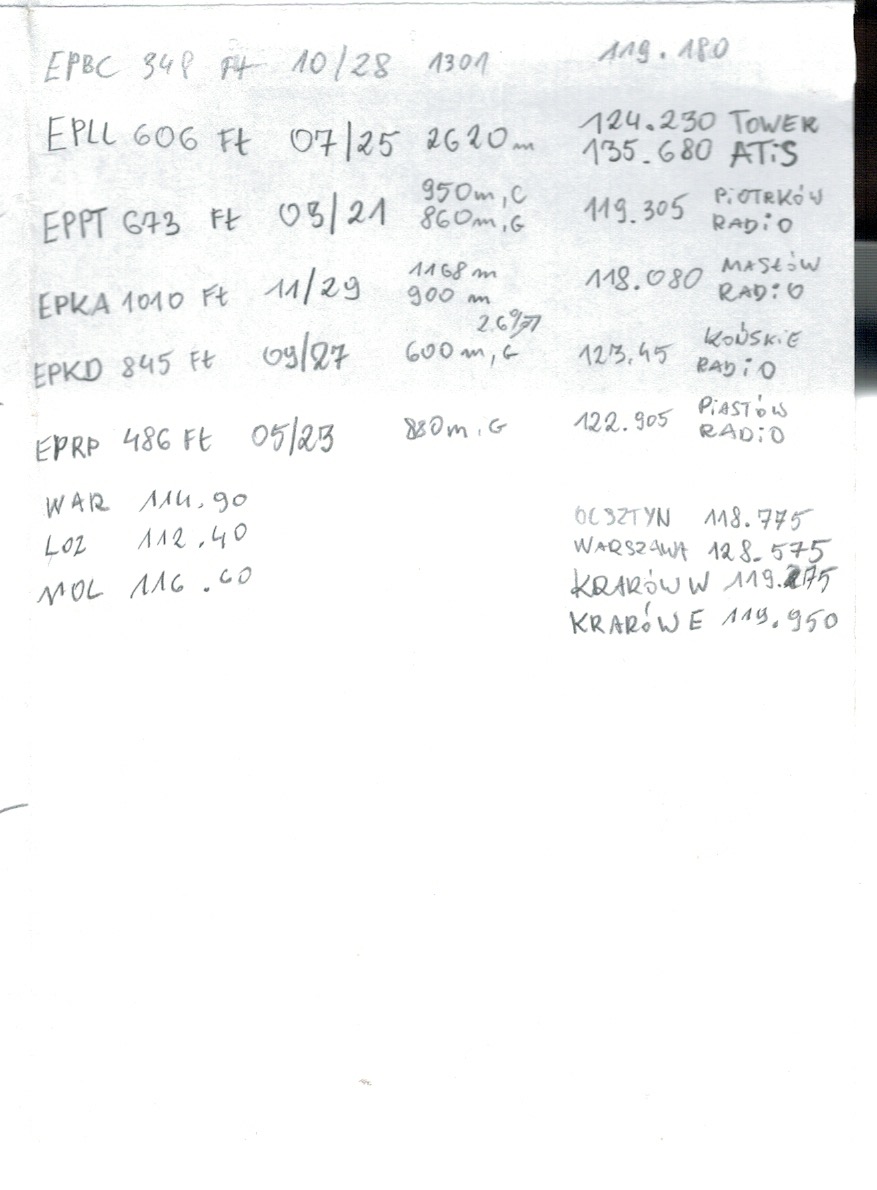 EPBC 348 Ft 10/28 1301 119.180
EPLL 606 Ft 07/25 2620m 124.230 TOWER
135.680 ATiS
EPPT 673 Ft 03/21 950m,C 119.305 PiOTRKÓW
860m,G RADiO
EPKA 1010 Ft 11/29 1168 m 118.080 MASŁÓW
900 m RADiO
EPKD 845 Ft 09/27 600m,G 123.45 KOŃSKiE
RADiO
EPRP 486 Ft 05/23 880m,G 122.905 PiASTÓW
RADiO
WAR 114.90
LOZ 112.40
MOL 116.60
OLSZTYN 118.775
WARSZAWA 128.575
KRAKÓW W 119.275
KRAKÓW E 119.950